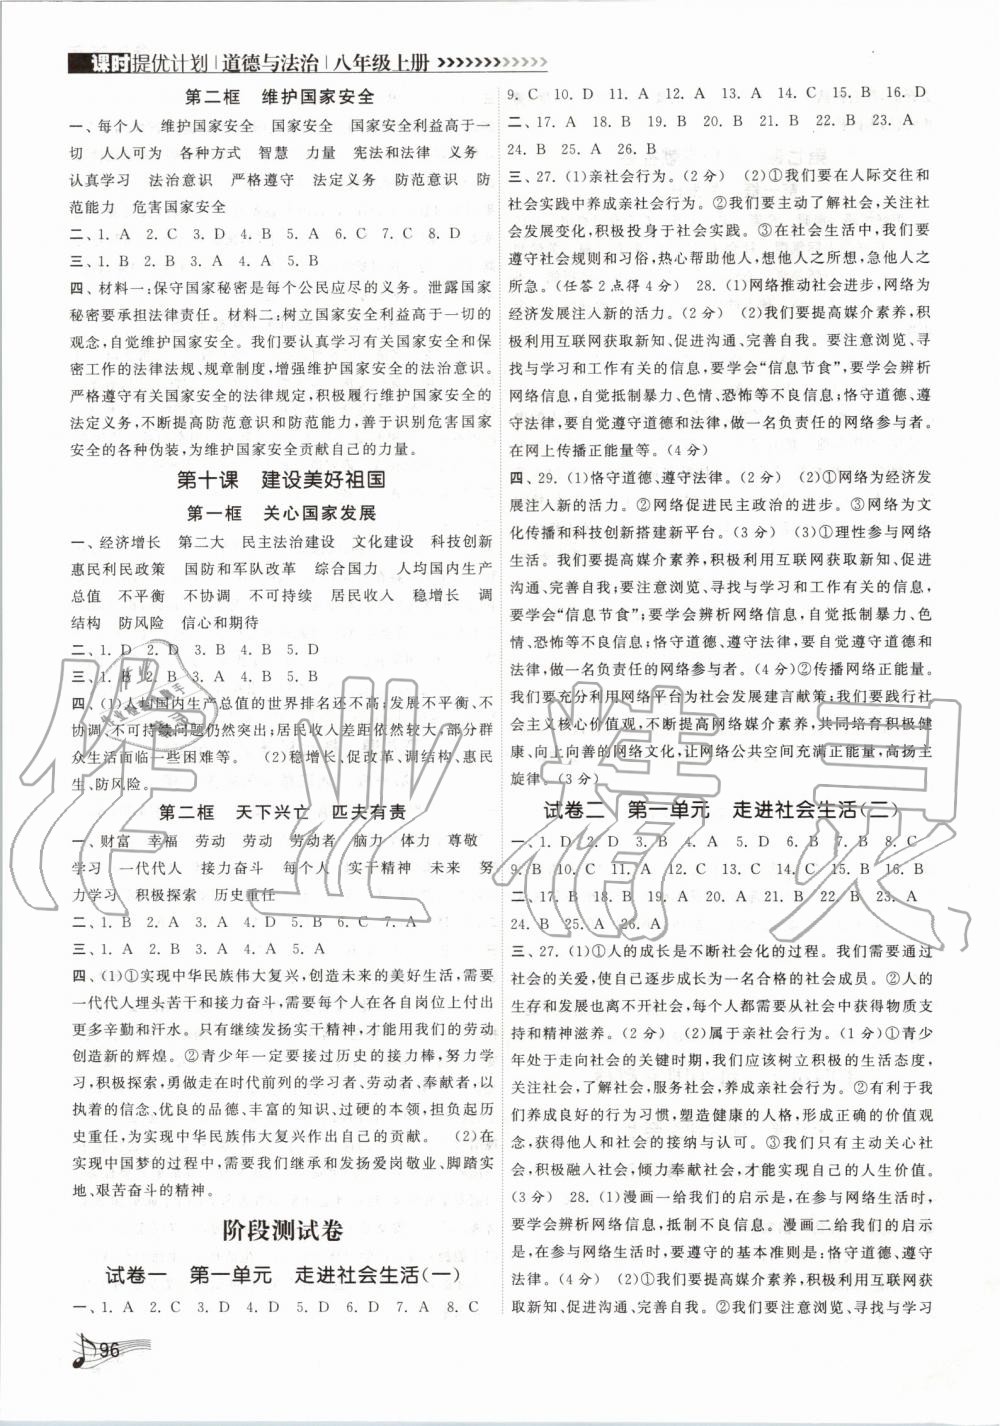 课时提优计划 | 道德与法治 | 八年级上册
第二框 维护国家安全
一、每个人 维护国家安全 国家安全 国家安全利益高于一
切 人人可为 各种方式 智慧 力量 宪法和法律 义务
认真学习 法治意识 严格遵守 法定义务 防范意识 防
范能力 危害国家安全
二、1. A 2. C 3. D 4. B 5. A 6. D 7. C 8. D
三、1. B 2. B 3. A 4. A 5. A
四、材料一:保守国家秘密是每个公民应尽的义务。泄露国家
秘密要承担法律责任。材料二:树立国家利益高于一切的
观念,自觉维护国家安全。我们要认真学习有关国家安全和保
密工作的法律法规、规章制度,增强维护国家安全的法治意识。
严格遵守有关国家安全的法律规定,积极履行维护国家安全的
法定义务,不断提高防范意识和防范能力,善于识别危害国家
安全的各种伪装,为维护国家安全贡献自己的力量。
第十课 建设美好祖国
第一框 关心国家发展
一、经济增长 第二大 民主法治建设 文化建设 科技创新
惠民利民政策 国防和军队改革 综合国力 人均国内生产
总值 不平衡 不协调 不可持续 居民收入 稳增长 调
结构 防风险 信心和期待
二、1. D 2. D 3. A 4. B 5. B 6. D 7. D
三、1. B 2. B 3. A 4. B 5. A
四、(1)人均国内生产总值的世界排名还不高;发展不平衡、不
协调、不可持续问题仍然突出;居民收入差距依然较大,部分群
众生活面临一些困难等。 (2)稳增长、促改革、调结构、惠民
生、防风险。
第二框 天下兴亡 匹夫有责
一、财富 幸福 劳动 劳动 劳动者 脑力 体力 尊敬
学习 一代代人 接力奋斗 每个人 实干精神 未来 努
力学习 积极探索 历史重任
二、1. B 2. A 3. A 4. D 5. B 6. A 7. C 8. C
三、1. A 2. B 3. A 4. A 5. A
四、(1)①实现中华民族伟大复兴,创造未来的美好生活,需要
一代代人埋头苦干和接力奋斗,需要每个人在各自岗位上付出
更多辛勤和汗水。只有继续发扬实干精神,才能用我们的劳动
创造新的辉煌。②青少年一定要接过历史的接力棒,努力学
习,积极探索,勇做走在时代前列的学习者、劳动者、奉献者,以
执着的信念、优良的品德、丰富的知识、过硬的本领,担负起历
史重任,为实现中华民族伟大复兴作出自己的贡献。 (2)在
实现中国梦的过程中,需要我们继承和发扬爱岗敬业、脚踏实
地、艰苦奋斗的精神。
阶段测试卷
试卷一 第一单元 走进社会生活(一)
一、1. A 2. C 3. D 4. D 5. D 6. D 7. A 8. C
96
9. C 10. D 11. A 12. A 13. A 14. C 15. B 16. D
二、17. A 18. B 19. B 20. B 21. A 22. B 23. A
24. B 25. A 26. B
三、27. (1)亲社会行为。(2分) (2)①我们要在人际交往和
社会实践中养成亲社会行为。②我们要主动了解社会,关注社
会发展变化,积极投身于社会实践。③在社会生活中,我们要
遵守社会规则和习俗,热心帮助他人,想他人之所想,急他人之
所急。(任答2点得4分) 28. (1)网络推动社会进步,网络为
经济发展注入新的活力。(2分) (2)我们要提高媒介素养,积
极利用互联网获取新知、促进沟通、完善自我。要注意浏览、寻
找与学习和工作有关的信息,要学会“信息节食”,要学会辨析
网络信息,自觉抵制暴力、色情、恐怖等不良信息;恪守道德、遵
守法律,要自觉遵守道德和法律,做一名负责任的网络参与者。
在网上传播正能量等。(4分)
四、29. (1)恪守道德、遵守法律。(2分) (2)①网络为经济发
展注入新的活力。②网络促进民主政治的进步。③网络为文
化传播和科技创新搭建新平台。(3分) (3)①理性参与网络
生活。我们要提高媒介素养,积极利用互联网获取新知、促进
沟通、完善自我;要注意浏览、寻找与学习和工作有关的信息,
要学会“信息节食”;要学会辨析网络信息,自觉抵制暴力、色
情、恐怖等不良信息;恪守道德、遵守法律,要自觉遵守道德和
法律,做一名负责任的网络参与者。(4分)②传播网络正能量。
我们要充分利用网络平台为社会发展建言献策;要践行社
会主义核心价值观,不断提高网络媒介素养,共同培育积极健
康、向上向善的网络文化,让网络公共空间充满正能量,高扬主
旋律。(3分)
试卷二 第一单元 走进社会生活(二)
一、1. D 2. D 3. B 4. A 5. D 6. B 7. B 8. C
9. B 10. C 11. A 12. C 13. C 14. A 15. C 16. B
二、17. B 18. B 19. A 20. A 21. B 22. B 23. A
24. B 25. A 26. A
三、27. (1)①人的成长是不断社会化的过程。我们需要通过
社会的关爱,使自己逐步成长为一名合格的社会成员。②人的
生存和发展也离不开社会,每个人都从社会中获得物质支
持和精神滋养。(2分) (2)属于亲社会行为。(1分)①青少
年处于走向社会的关键时期,我们应该树立积极的生活态度,
关注社会,了解社会,服务社会,养成亲社会行为。②有利于我
们养成良好的行为习惯,塑造健康的人格,形成正确的价值观
念,获得他人和社会的接纳与认可。③我们只有主动关心社
会,积极融入社会,倾力奉献社会,才能实现自己的人生价值。
(3分) 28. (1)漫画一给我们的启示是,在参与网络生活时,
要学会辨析网络信息,抵制不良信息。漫画二给我们的启示
是,在参与网络生活时,要遵守的基本准则是:恪守道德、遵守
法律。(4分) (2)①我们要提高媒介素养,积极利用互联网获
取新知、促进沟通、完善自我。②我们要注意浏览、寻找与学习
作业精灵